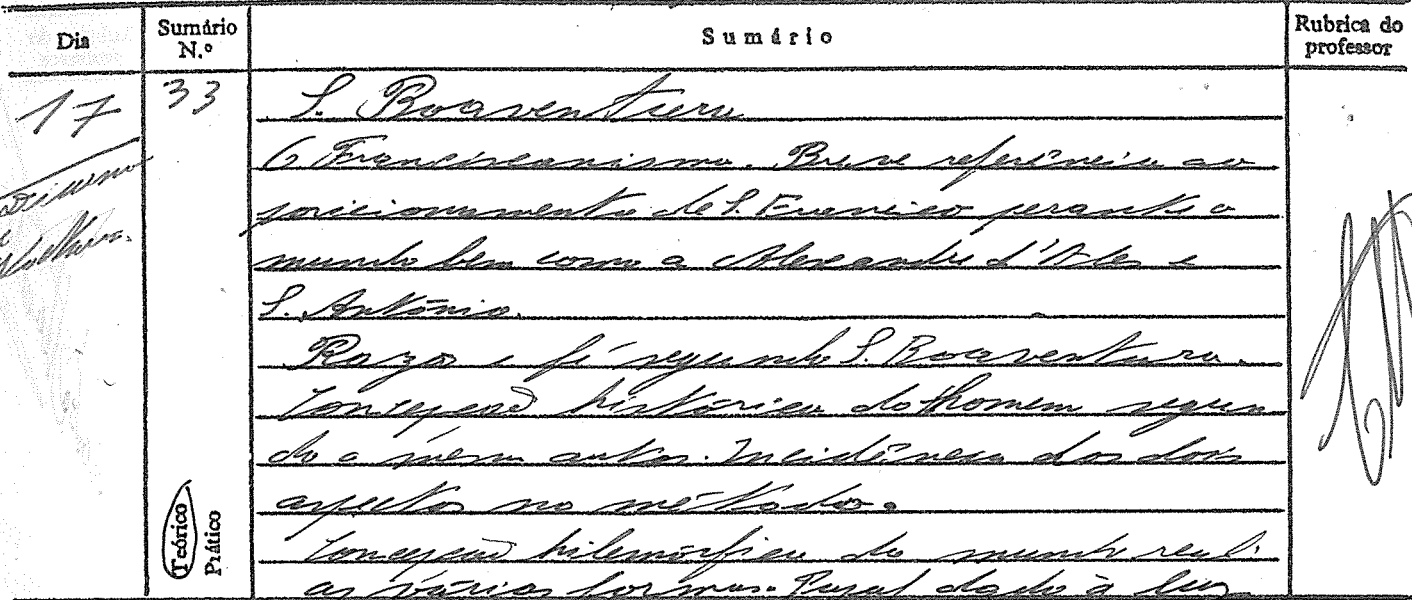 Dia
Sumário N.º
Sumário
Rubrica do professor
17
33
S. Boaventura
O Franciscanismo. Breve referência ao
posicionamento de S. Francisco perante o
mundo bem como a Alexandre d'Ales e
S. António.
Razão e fé segundo S. Boaventura.
Concepção histórica do homem segun
do o mesmo autor. Incidência dos dois
aspectos no método.
Concepção hilemórfica do mundo real:
as várias formas. Papel dado à luz
Teórico
Prático